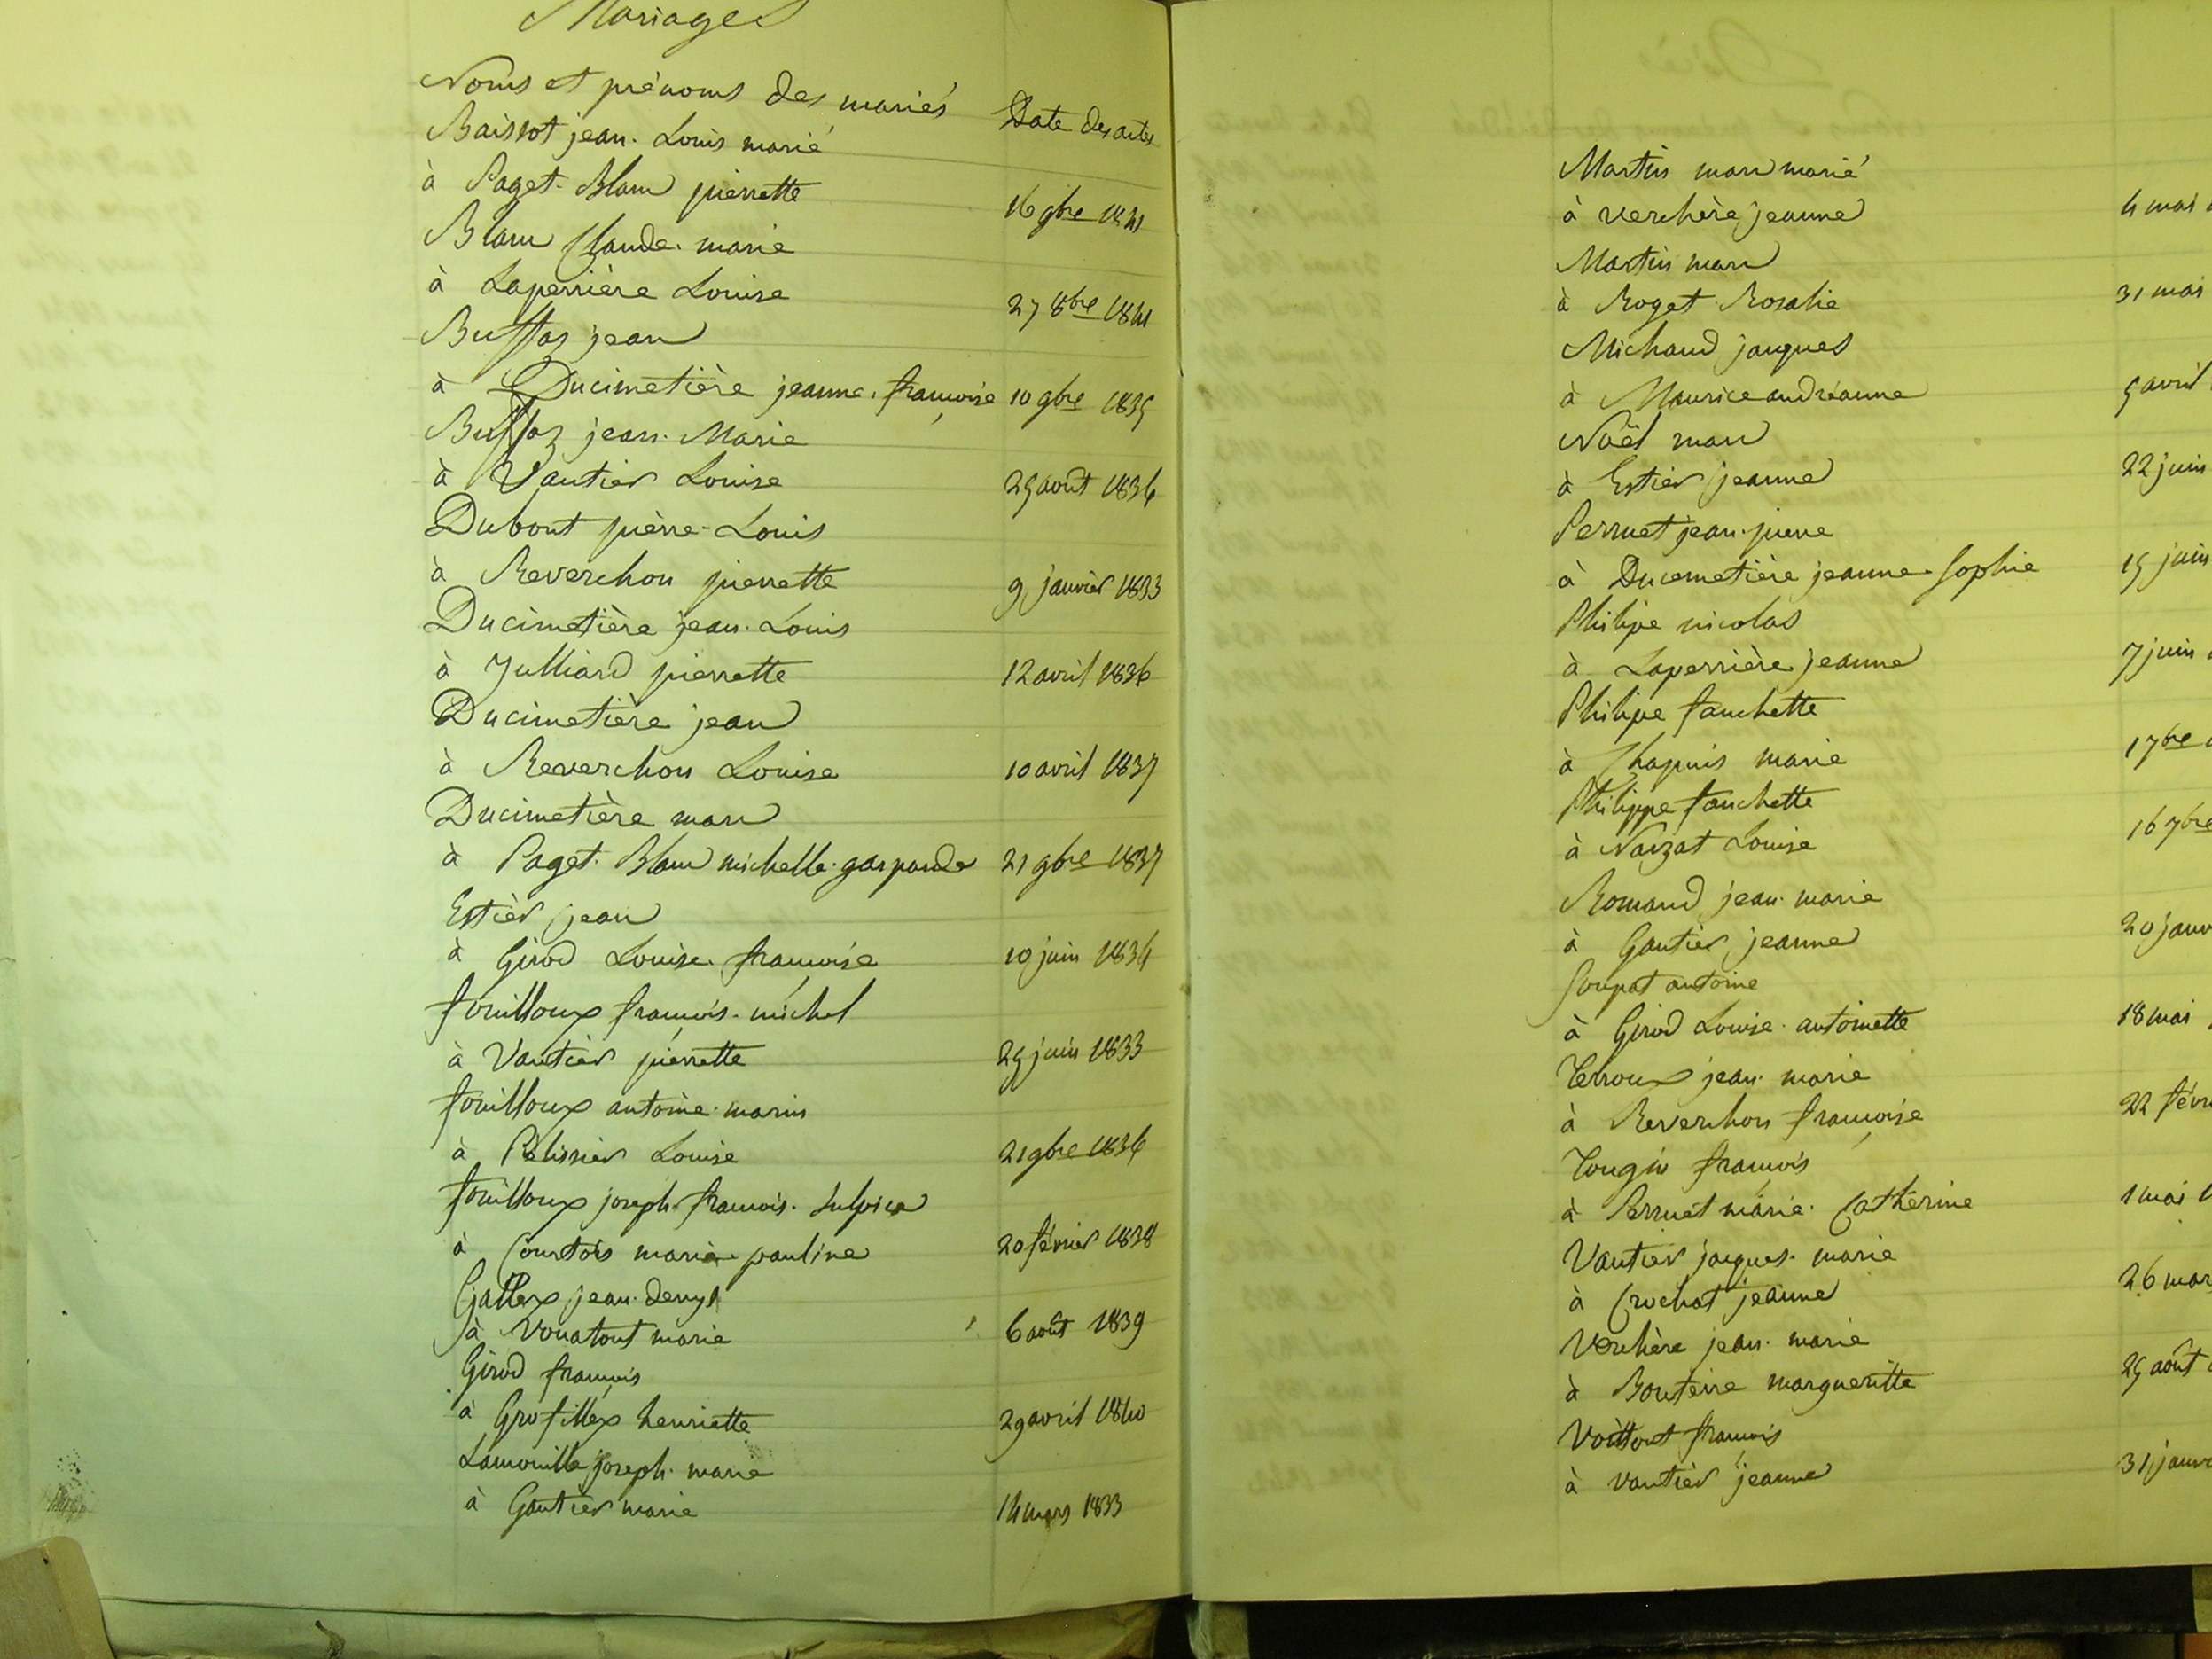 Mariages
Noms et prénoms des mariés Date des actes
Baissot jean. Louis marié
à Paget. Blanc pierrette 16 9bre 1841
Blanc Claude. marie
à Laperrière Louise 27 8bre 1841
Buffaz jean
à Ducimetière jeanne. françoise 10 9bre 1835
Buffaz jean. Marie
à Vautier Louise 25 août 1836
Dubout pièrre. Louis
à Reverchon pierrette 9 janvier 1833
Ducimetière jean. Louis
à Julliard pierrette 12 avril 1836
Ducimetière jean
à Reverchon Louise 10 avril 1837
Ducimetière marc
à Paget. Blanc michelle. gasparde 21 9bre 1837
Estièr jean
à Girod Louise. françoise 10 juin 1834
fouilloux françois. michel
à Vautier pierrette 25 juin 1833
fouilloux antoine. marin
à Pelissier Louise 21 9bre 1836
fouilloux joseph. françois. Sulpice
à Courtois marie. pauline 20 février 1838
Gallex jean. denys
à Vouatout marie 6 août 1839
Girod françois
à Grofillex henriette 29 avril 1840
Lamouille joseph. marie
à Gautier marie 14 mars 1833
Martin marc marié
à verchère jeanne 4 mai
Martin marc
à Roget Rosalie 31 mai
Michaud jacques
à Maurice andréanne 5 avril
Noël marc
à Estier jeanne 22 juin
Perruet jean. pierre
à Ducemetière jeanne. Sophie 15 juin
Philipe nicolas
à Laperrière jeanne 7 juin
Philipe fanchette
à Chapuis marie 1 7bre
Philippe fanchette
à Naizat Louise 16 7bre
Romand jean. marie
à Gautier jeanne 20 janv
Soupat antoine
à Girod Louise. antoinette 18 mai
Terroux jean. marie
à Reverchon françoise 22 févr
Tougin françois
à Perruet marie. Catherine 1 mai 1
Vautier jacques. marie
à Crochat jeanne 26 mar
Verchère jean. marie
à Bouteire margueritte 25 août
Voittout françois
à vautièr jeanne 31 janv